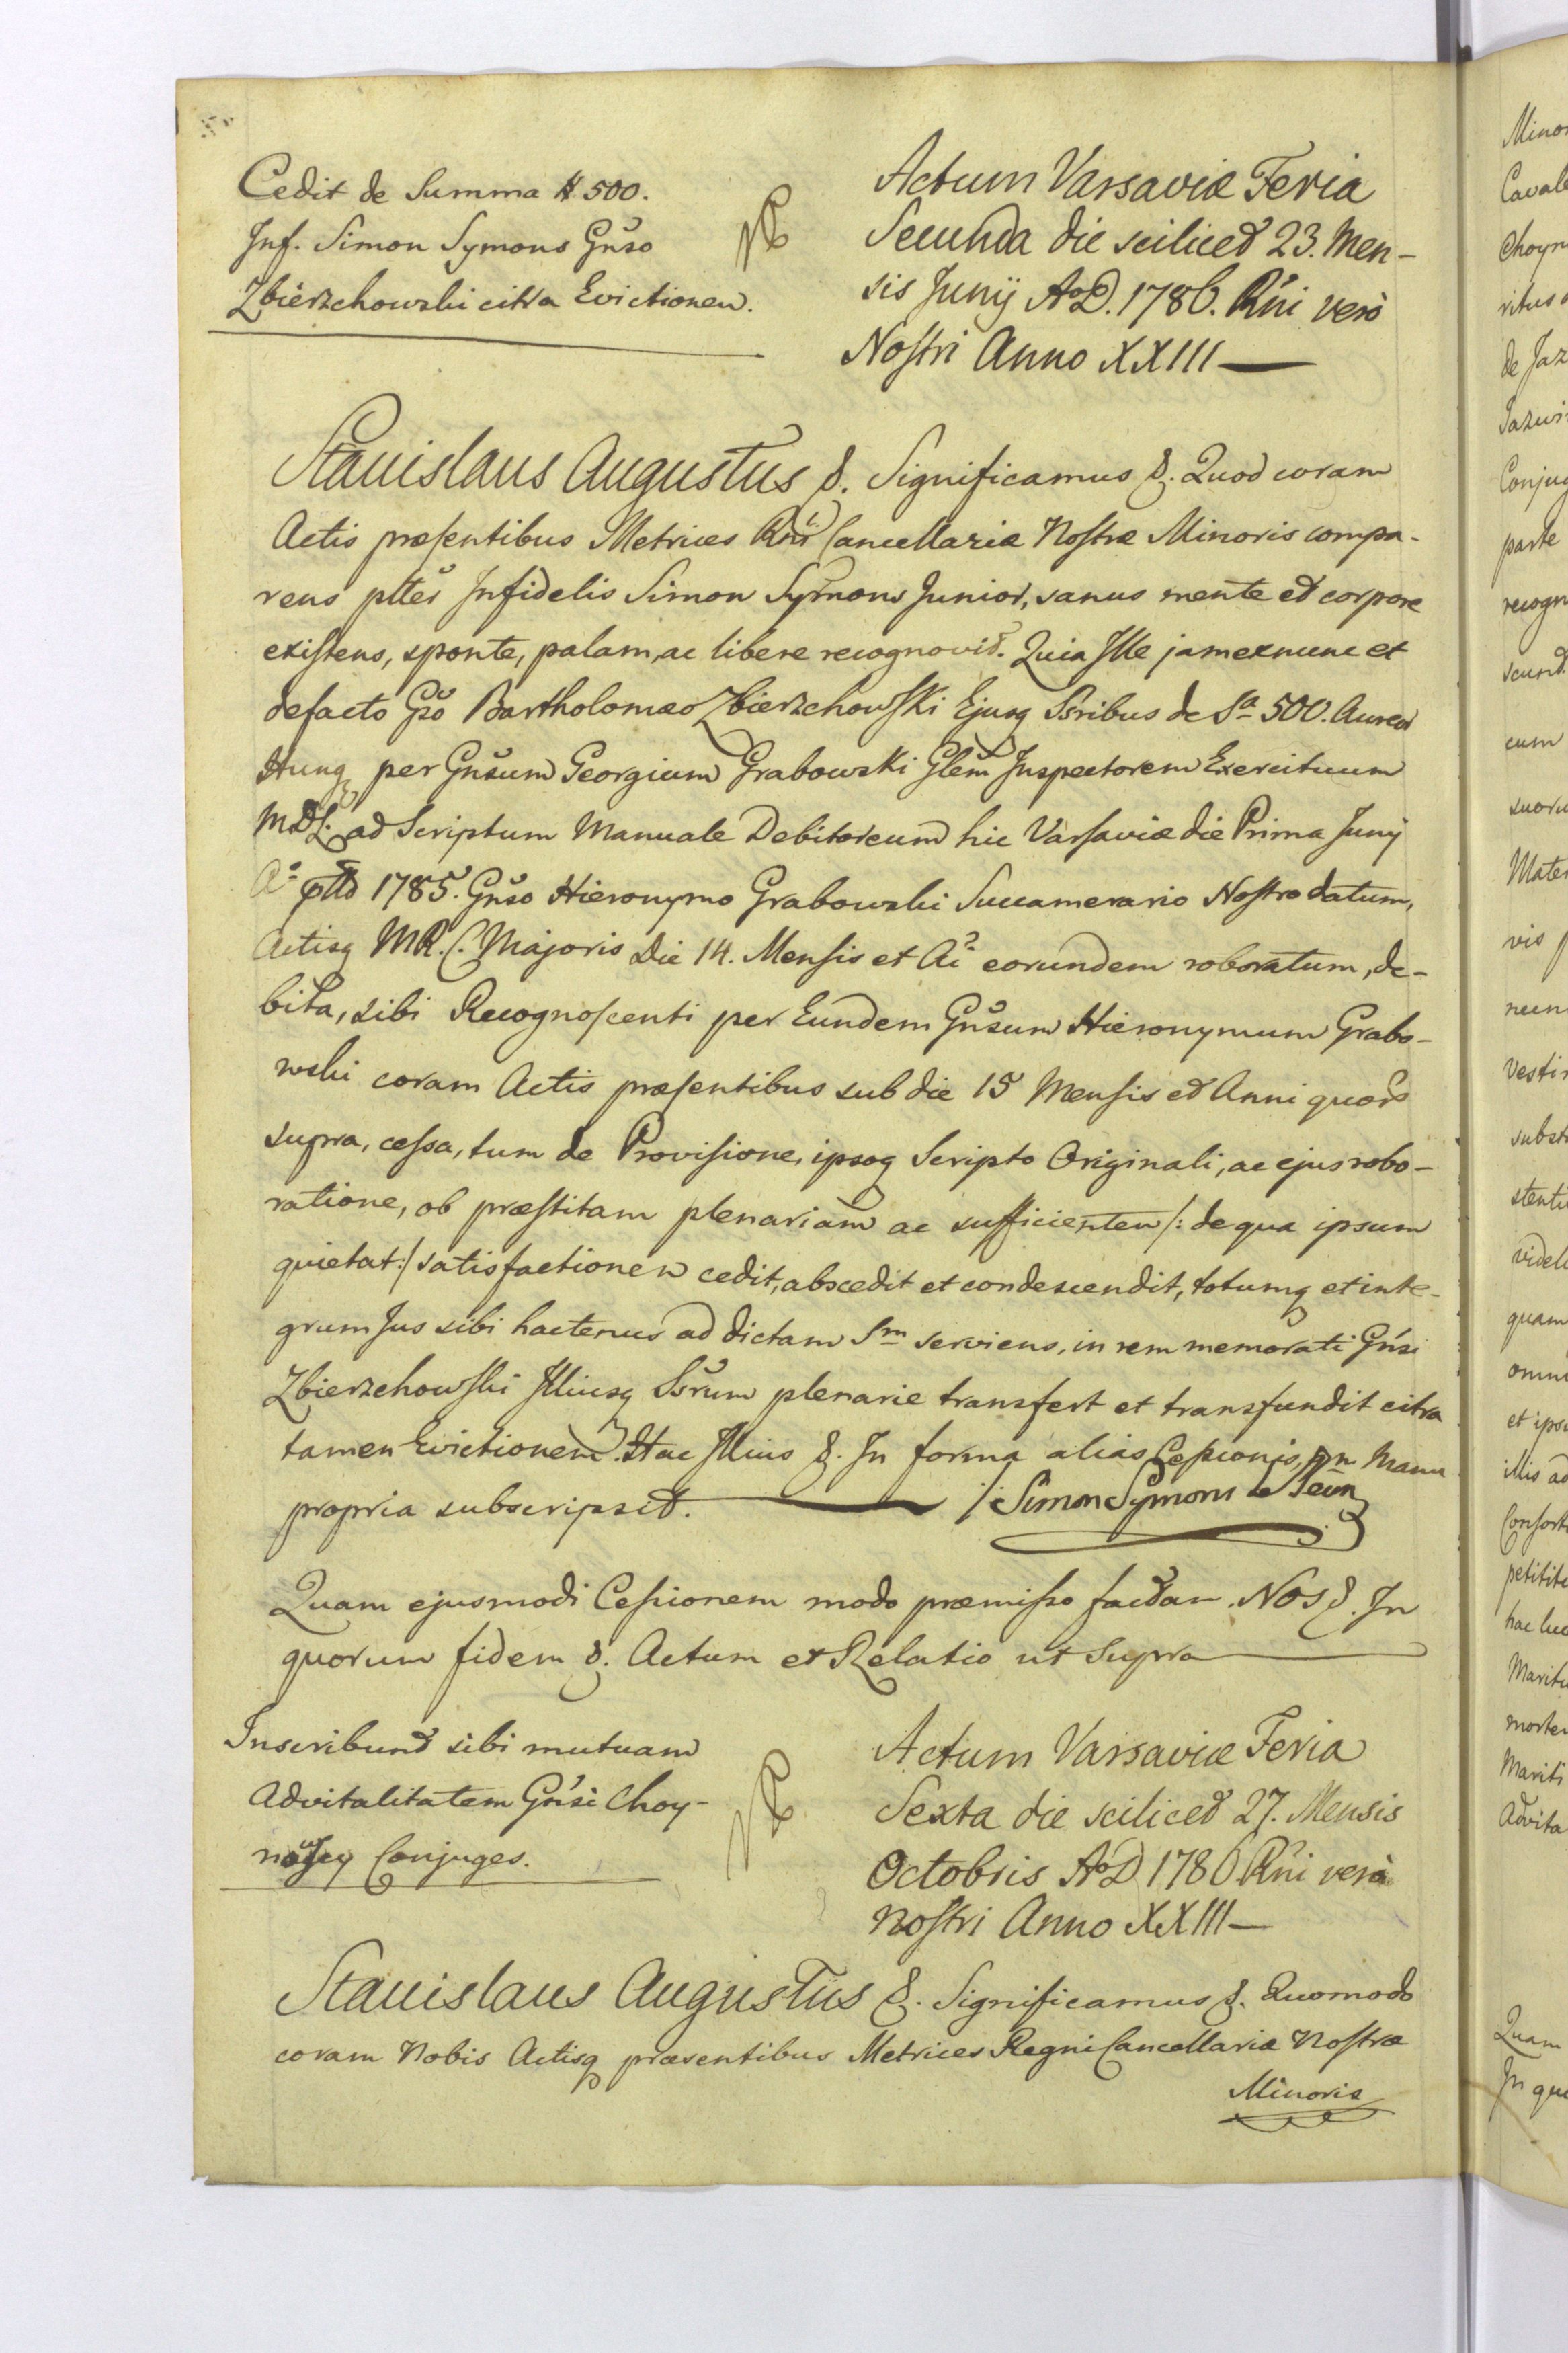 Cedit de Summa # 500.
Inf. Simon Symons Gnso
Zbierzchowski citra Evictionem.
Actum Varsaviæ Feria
Secunda die scilicet 23. Men-
sis Junij AoD. 1786. Rni verò
Nostri Anno XXIII
Stanislaus Augustus &. Significamus &. Quod coram
Actis præsentibus Metrices Rni Cancellariæ Nostræ Minoris compa-
rens plter Infidelis Simon Symons Junior, sanus mente et corpore
existens, sponte, palam, ac libere recognovit. Quia Ille jamexnunc et
defacto Gso Bartholomæo Zbierzchowski Ejusq Ssribus de Sa 500. Aureor
Hung per Gnsum Georgium Grabowski Glem Inspectorem Exercituum
MDL. ad Scriptum Manuale Debitoreum hic Varsaviæ die Prima Junij
Ao pttô 1785. Gnso Hieronymo Grabowski Succamerario Nostro datum,
Actisq MR. C. Majoris Die 14. Mensis et Ai eorundem roboratum, de-
bita, sibi Recognoscenti per Eundem Gnsum Hieronymum Grabo-
wski coram Actis præsentibus sub die 15 Mensis et Anni quors
supra, cessa, tum de Provisione, ipsoq Scripto Originali, ac ejus robo-
ratione, ob præstitam plenariam ac sufficientem /: de qua ipsum
quietat :/ satisfactionem cedit, abscedit et condescendit, totumq et inte-
grum Jus sibi hactenus ad dictam Sm serviens, in rem memorati Gnsi
Zbierzchowski Illiusq Ssrum plenarie transfert et transfundit citra
tamen Evictionem. Hac Illius &. In forma alias Cessionis, Manu
propria subscripsit. /: Simon Symons
Quam ejusmodi Cessionem modo præmisso factam. Nos &. In
quorum fidem &. Actum et Relatio ut Supra
Inscribunt sibi mutuam
Advitalitatem Gnsi Choy-
Conjuges.
Actum Varsaviæ Feria
Sexta die scilicet 27. Mensis
Octobris AoD 1786 Rni verò
nostri Anno XXIII
Stanislaus Augustus &. Significamus &. Quomodo
coram Nobis Actisq præsentibus Metrices Regni Cancellariæ Nostræ
Minoris